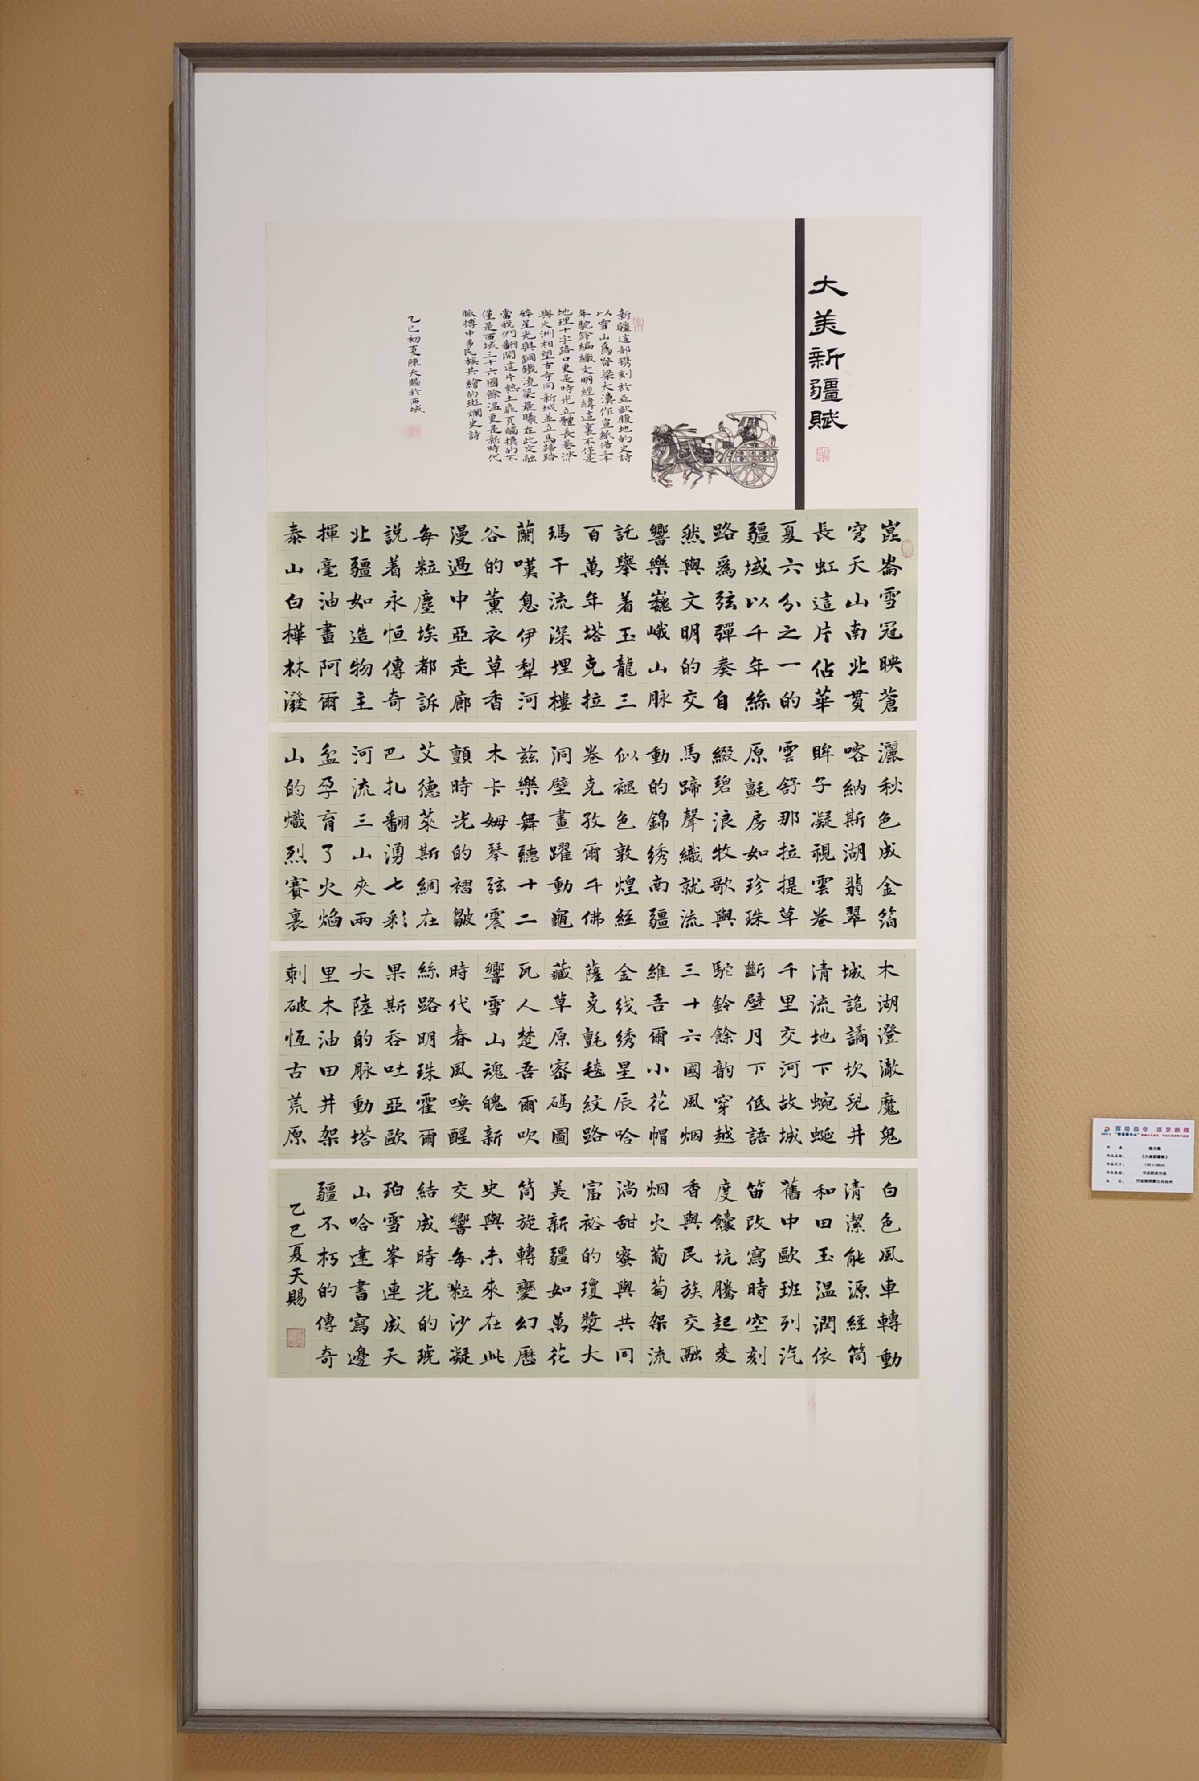 大美新疆賦
新疆這部鐫刻於亞歐腹地的史詩
以雪山爲脊梁大漠作宣紙借三千
年駝鈴編織文明經緯這裏不僅是
地理十字路口更是時光立體長卷冰
與火洲相望古寺同新城並立馬蹄踏
碎星光與鋼鐵澆築晨曦在此交融
當我們翻開這片熱土扉頁觸摸的不
僅是西域三十六國餘溫更是新時代
脈搏中多民族共繪的斑斕史詩
乙巳初夏陳天賜於西域
崑崙雪冠映蒼
穹天山南北貫
長虹這片佔華
夏六分之一的
疆域以千年絲
路爲弦彈奏自
然與文明的交
響樂巍峨山脈
託舉着玉龍三
百萬年塔克拉
瑪干流深埋樓
蘭嘆息伊犁河
谷的薰衣草香
漫過中亞走廊
每粒塵埃都訴
説着永恒傳奇
北疆如造物主
揮毫油畫阿爾
泰山白樺林潑
灑秋色成金箔
喀納斯湖翡翠
眸子凝視雲卷
雲舒那拉提草
原氈房如珍珠
綴碧浪牧歌與
馬蹄聲織就流
動的錦绣南疆
似褪色敦煌經
卷克孜爾千佛
洞壁畫躍動龜
兹樂舞聽十二
木卡姆琴弦震
顫時光的褶皺
艾德萊斯綢在
巴扎翻湧七彩
河流三山夾兩
盆孕育了火焰
山的熾烈賽裏
木湖澄澈魔鬼
城詭譎坎兒井
清流地下蜿蜒
千里交河故城
斷壁月下低語
駝鈴餘韵穿越
三十六國風烟
維吾爾小花帽
金线绣星辰哈
薩克氈毯紋路
藏草原密碼圖
瓦人楚吾爾吹
響雪山魂魄新
時代春風喚醒
絲路明珠霍爾
果斯吞吐亞歐
大陸的脈動塔
里木油田井架
刺破恆古荒原
白色風車轉動
清潔能源經筒
和田玉温潤依
舊中歐班列汽
笛改寫時空刻
度饢坑騰起麦
香與民族交融
烟火葡萄架流
淌甜蜜與共同
富裕的瓊漿大
美新疆如萬花
筒旋轉變幻歷
史與未來在此
交響每粒沙凝
結成時光的琥
珀雪峯連成天
山哈達書寫邊
疆不朽的傳奇
乙巳夏天賜